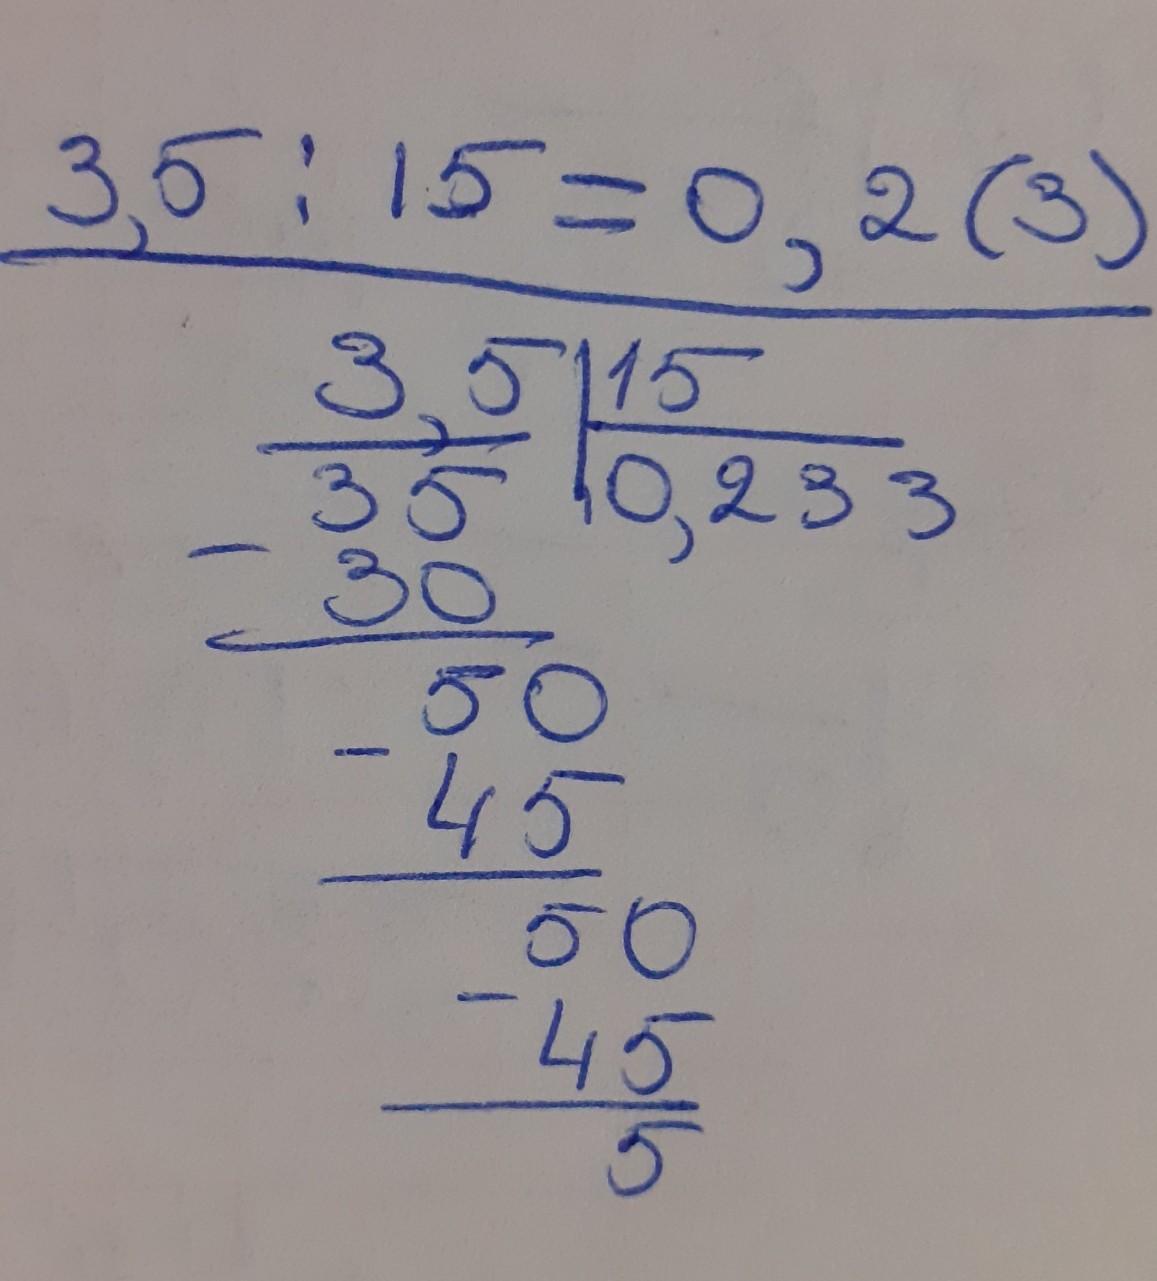 3,5 : 15 = 0,2(3)
3,5 | 15
35 | 0,233
- 30
50
- 45
50
- 45
5